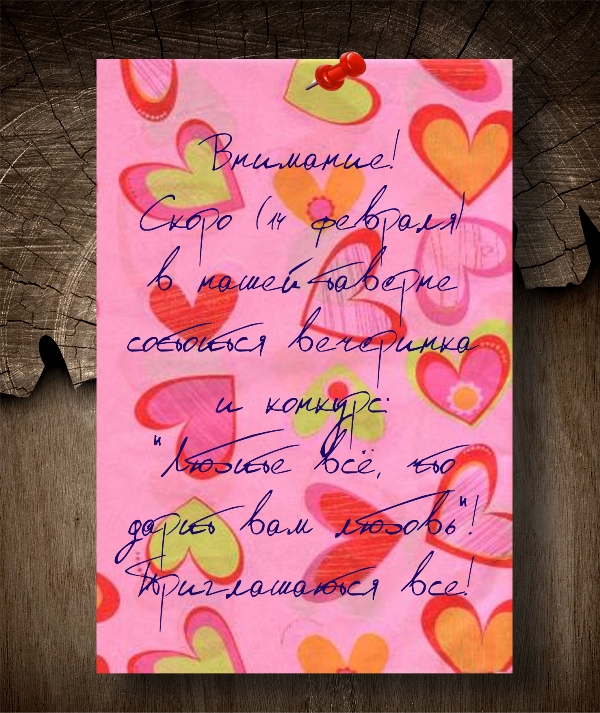 Внимание!
Скоро (14 февраля)
в нашей таверне
состоиться вечеринка
и конкурс:
"Любите всё, что
дарит вам любовь"!
Приглашаються все!